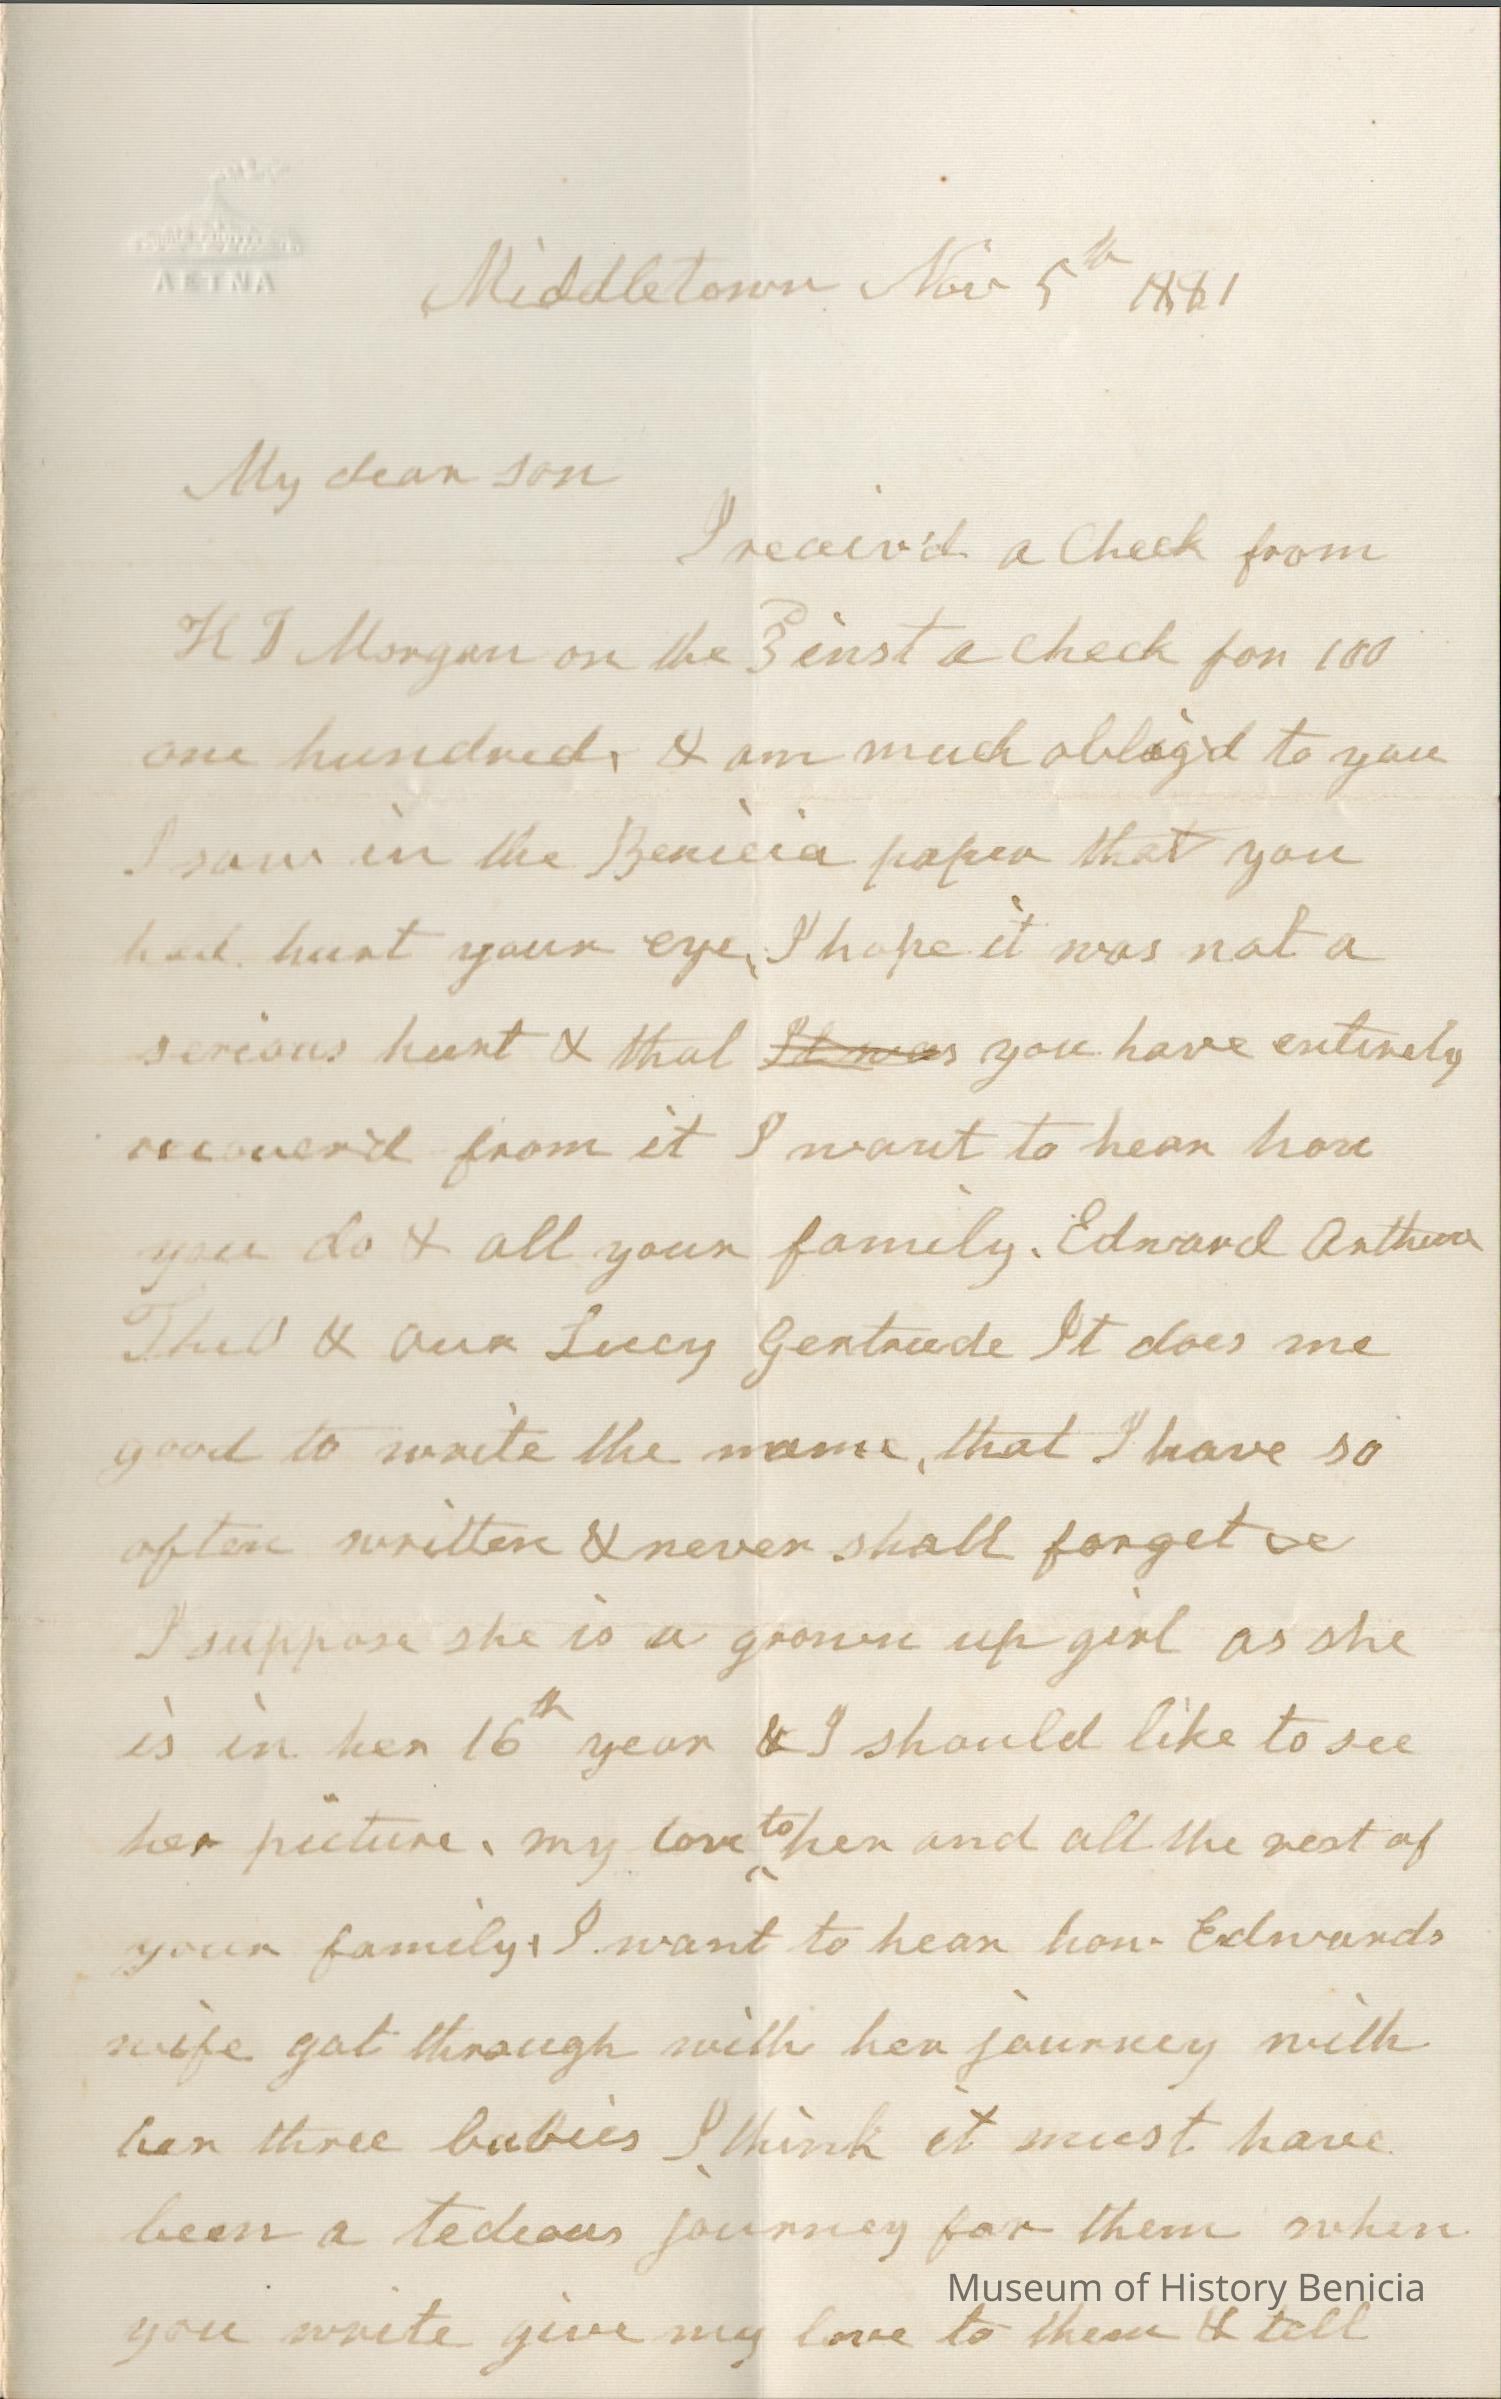 AETNA
Middletown Nov 5th 1881
My dear son
I receiv'd a Check from
H T Morgan on the 3 inst a check for 100
one hundred, & am much oblig'd to you
I saw in the Benicia paper that you
had hurt your eye, I hope it was not a
serious hurt & that It was you have entirely
recover'd from it I want to hear how
you do & all your family. Edward Arthur
& our Lucy Gertrude It does me
good to write the name, that I have so
often written & never shall forget
I suppose she is a grown up girl as she
is in her 16th year & I should like to see
her picture, my love to her and all the rest of
your family, I want to hear how Edwards
wife got through with her journey with
her three babies I think it must have
been a tedeous journey for them when
Museum of History Benicia
you write give my love to them & tell